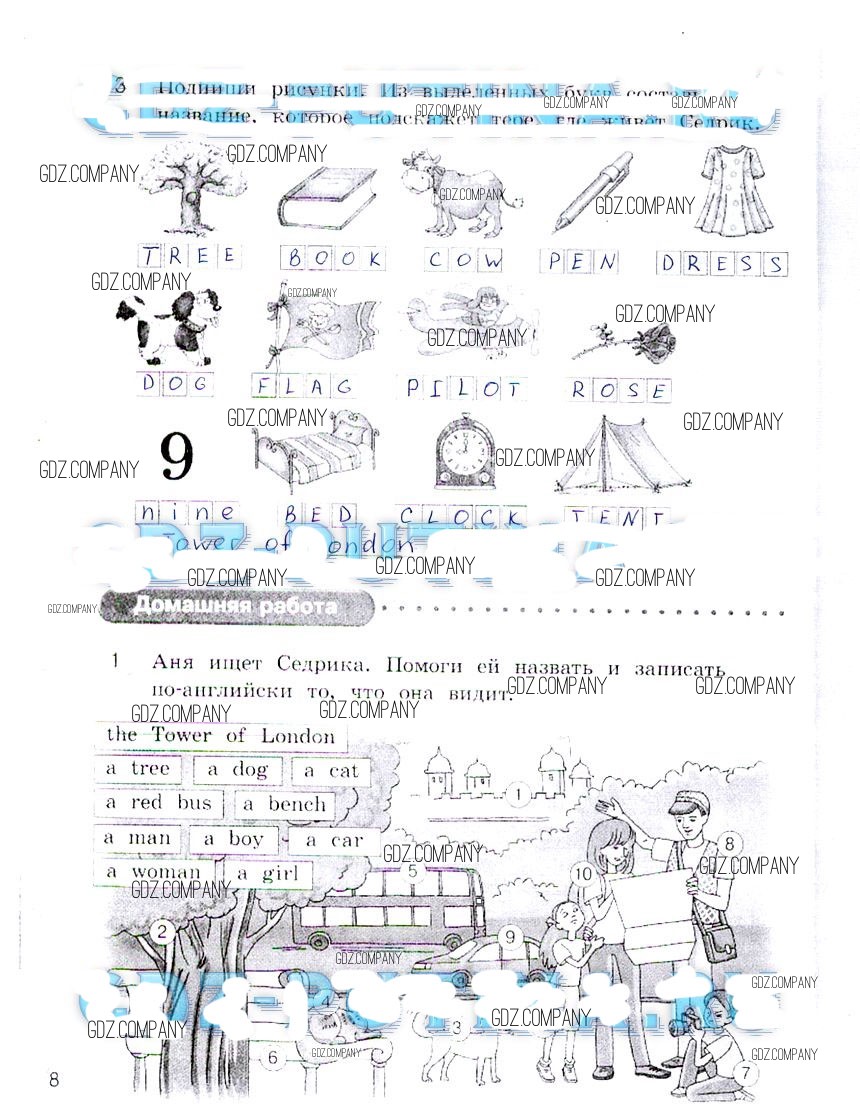 3 Подпиши рисунки. Из выделенных букв составь
название, которое подскажет тебе, где живёт Седрик.
GDZ.COMPANY GDZ.COMPANY GDZ.COMPANY
GDZ.COMPANY GDZ.COMPANY
GDZ.COMPANY GDZ.COMPANY
TREE BOOK COW PEN DRESS
GDZ.COMPANY GDZ.COMPANY
GDZ.COMPANY GDZ.COMPANY
DOG FLAG PILOT ROSE
GDZ.COMPANY GDZ.COMPANY
9
12
GDZ.COMPANY GDZ.COMPANY
nine BED CLOCK TENT
Tower of ondon
GDZ.COMPANY GDZ.COMPANY GDZ.COMPANY
GDZ.COMPANY Домашняя работа
1 Аня ищет Седрика. Помоги ей назвать и записать
по-английски то, что она видит.
GDZ.COMPANY GDZ.COMPANY
GDZ.COMPANY GDZ.COMPANY
the Tower of London
a tree a dog a cat
1
a red bus a bench
a man a boy a car
8
GDZ.COMPANY GDZ.COMPANY
a woman a girl
5 10
GDZ.COMPANY
2 9
GDZ.COMPANY
GDZ.COMPANY
GDZ.COMPANY 3 GDZ.COMPANY
6 GDZ.COMPANY GDZ.COMPANY
7
8